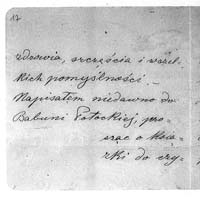 17
zdrowia, szczęścia i wszel-
kich pomyślności. —
Napisałem niedawno do
Babuni Potockiej, pro-
sząc o ksią-
żki do czy-